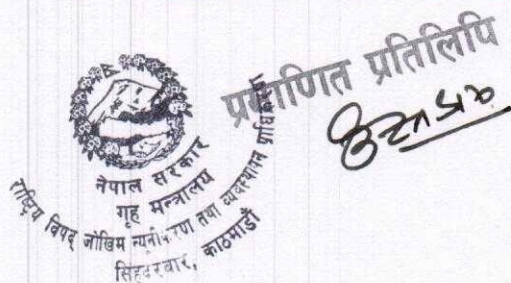 प्रमाणित प्रतिलिपि
नेपाल सरकार
गृह मन्त्रालय
राष्ट्रिय विपद् जोखिम न्यूनीकरण तथा व्यवस्थापन प्राधिकरण
सिंहदरबार, काठमाडौं